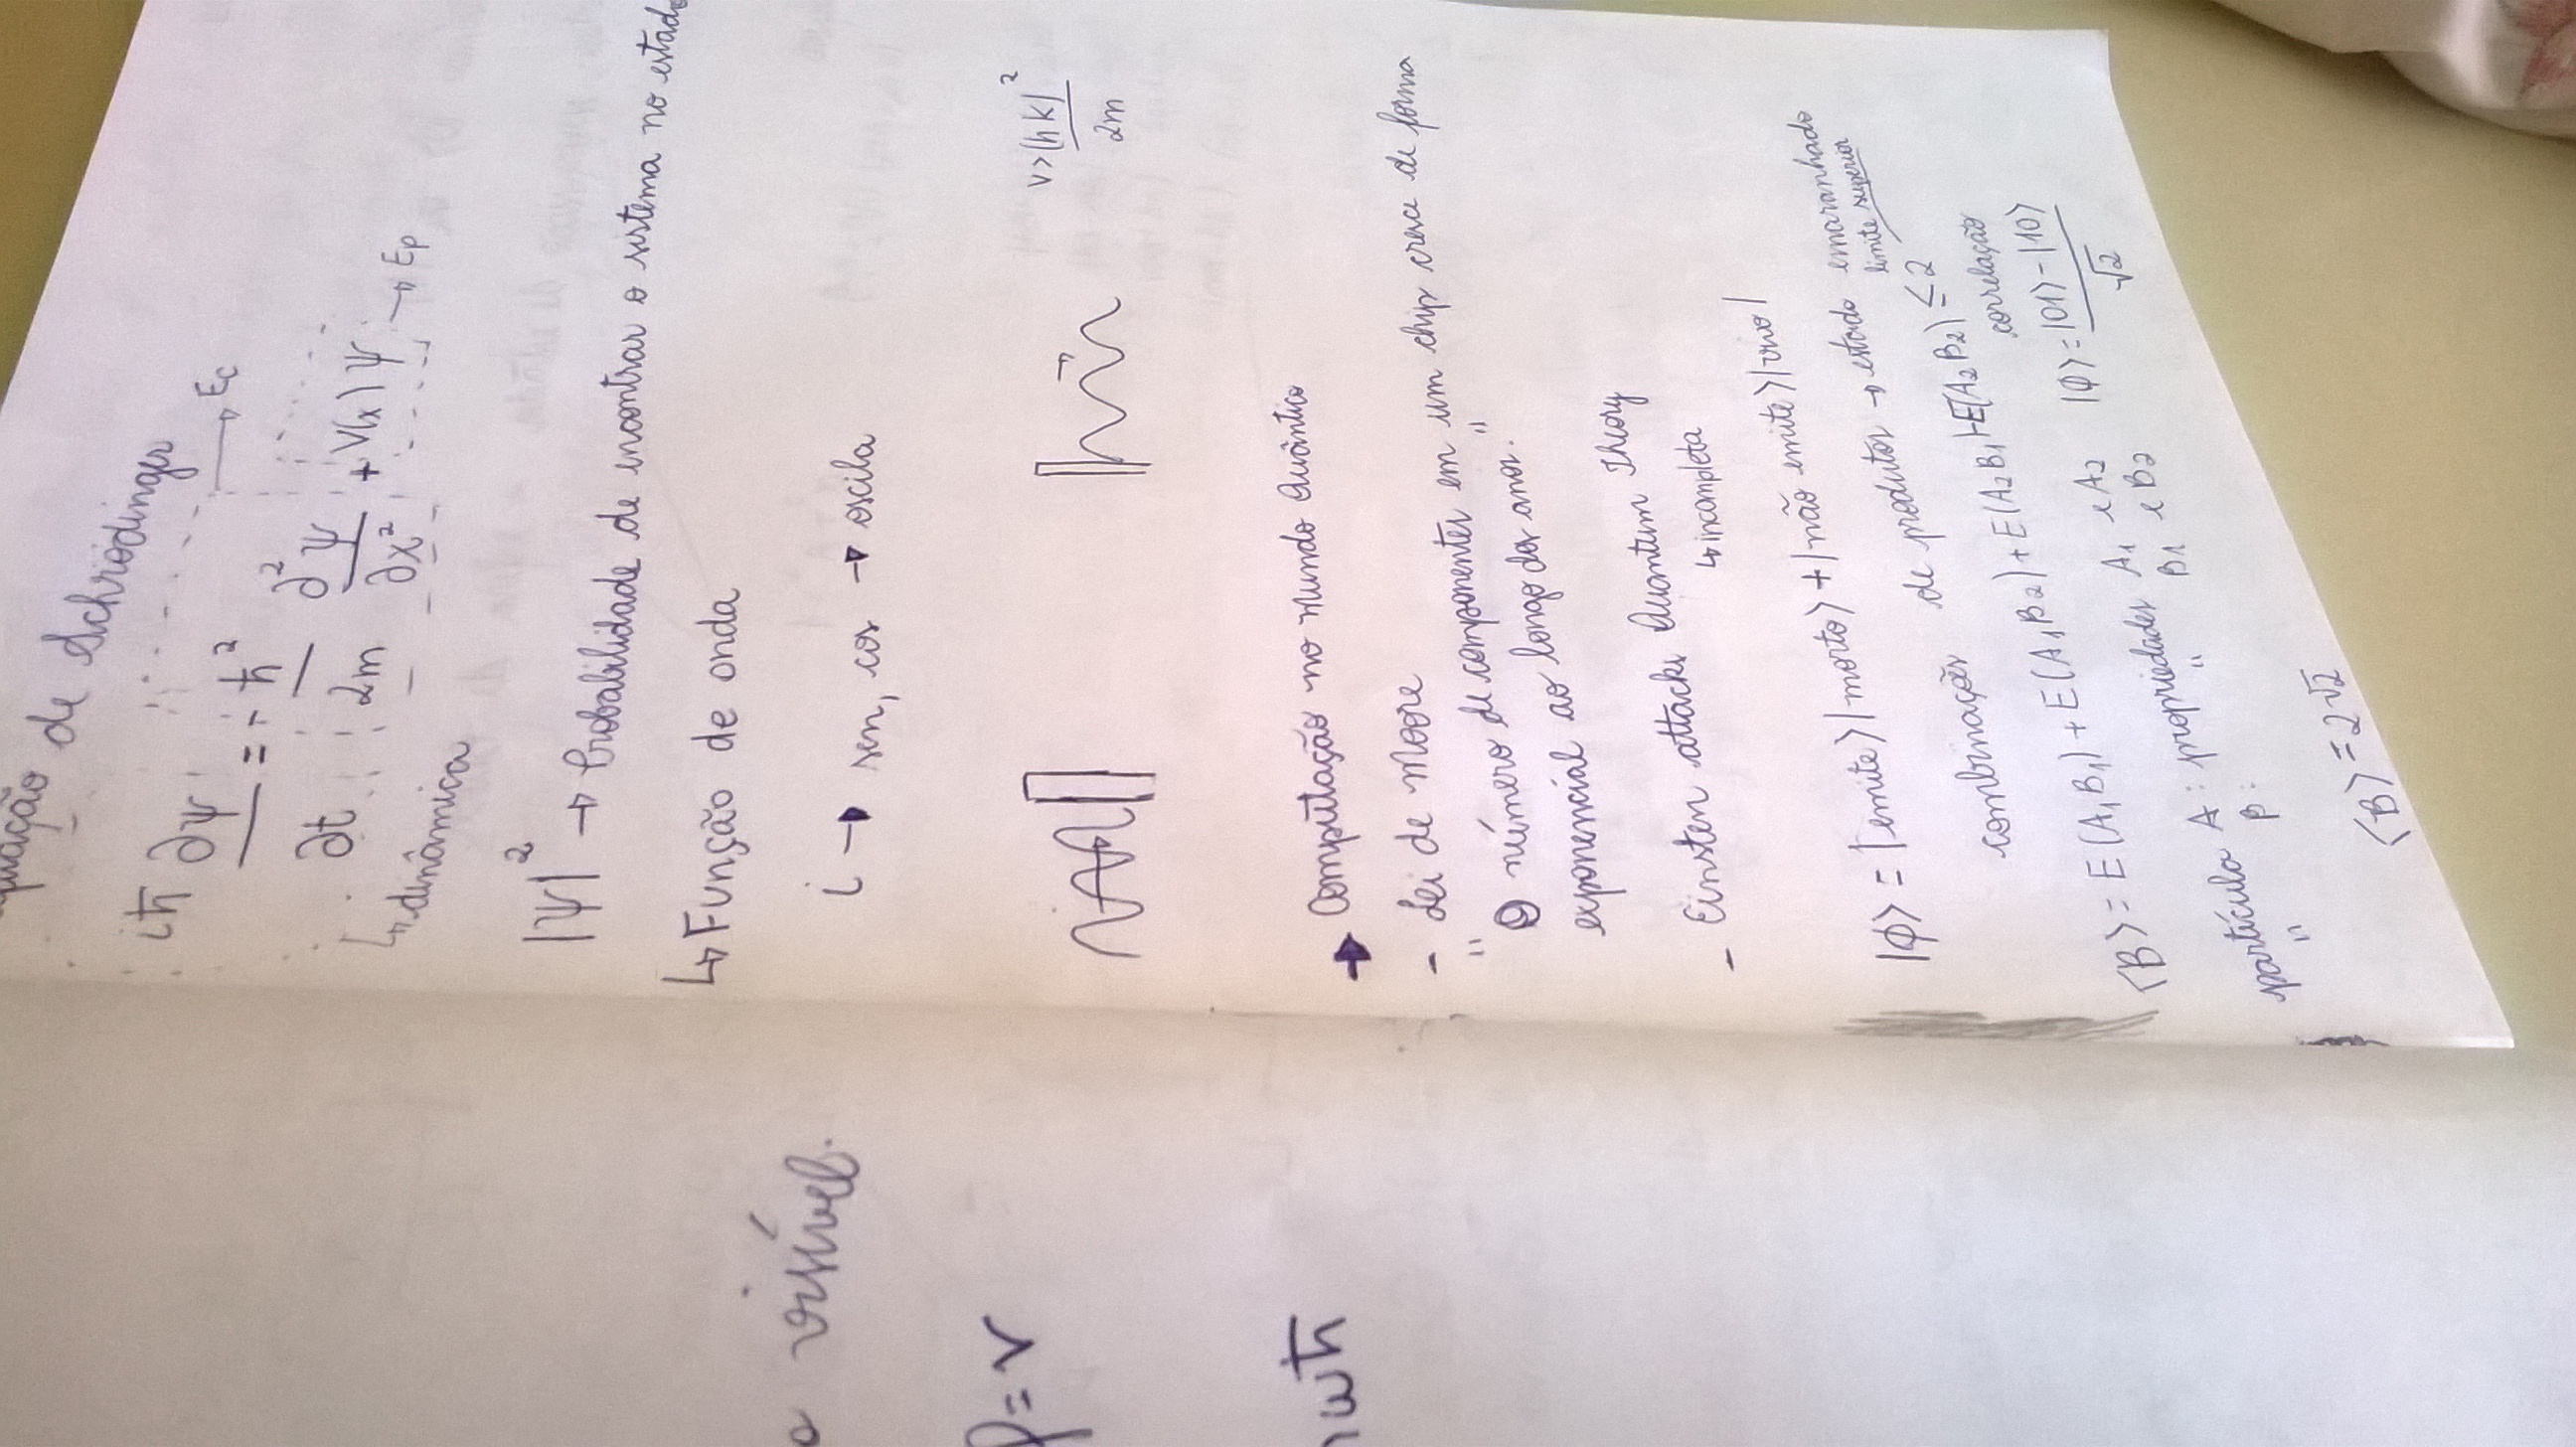 de Schriodinger
iħ ∂ψ/∂t = - ħ²/2m ∂²ψ/∂x² + V(x)ψ
→ Ec
→ Ep
↳ dinâmica
|ψ|² → Probabilidade de encontrar o sistema no estado
↳ Função de onda
i → sen, cos → oscila
V > (ħk)²/2m
→ Computação no mundo Quântico
- Lei de Moore
" O número de componentes em um chip cresce de forma
exponencial ao longo dos anos. "
- Einsten attacks Quantum Theory
↳ incompleta
|φ⟩ = |emite⟩|morto⟩ + |não emite⟩|vivo|
combinações de produtos → estado emaranhado
limite superior
⟨B⟩ = E(A₁B₁) + E(A₁B₂) + E(A₂B₁) - E(A₂B₂) ≤ 2
correlação
partícula A: propriedades A₁ e A₂
" B: " B₁ e B₂
|φ⟩ = |01⟩ - |10⟩/√2
⟨B⟩ = 2√2
visível.
= v
ωħ